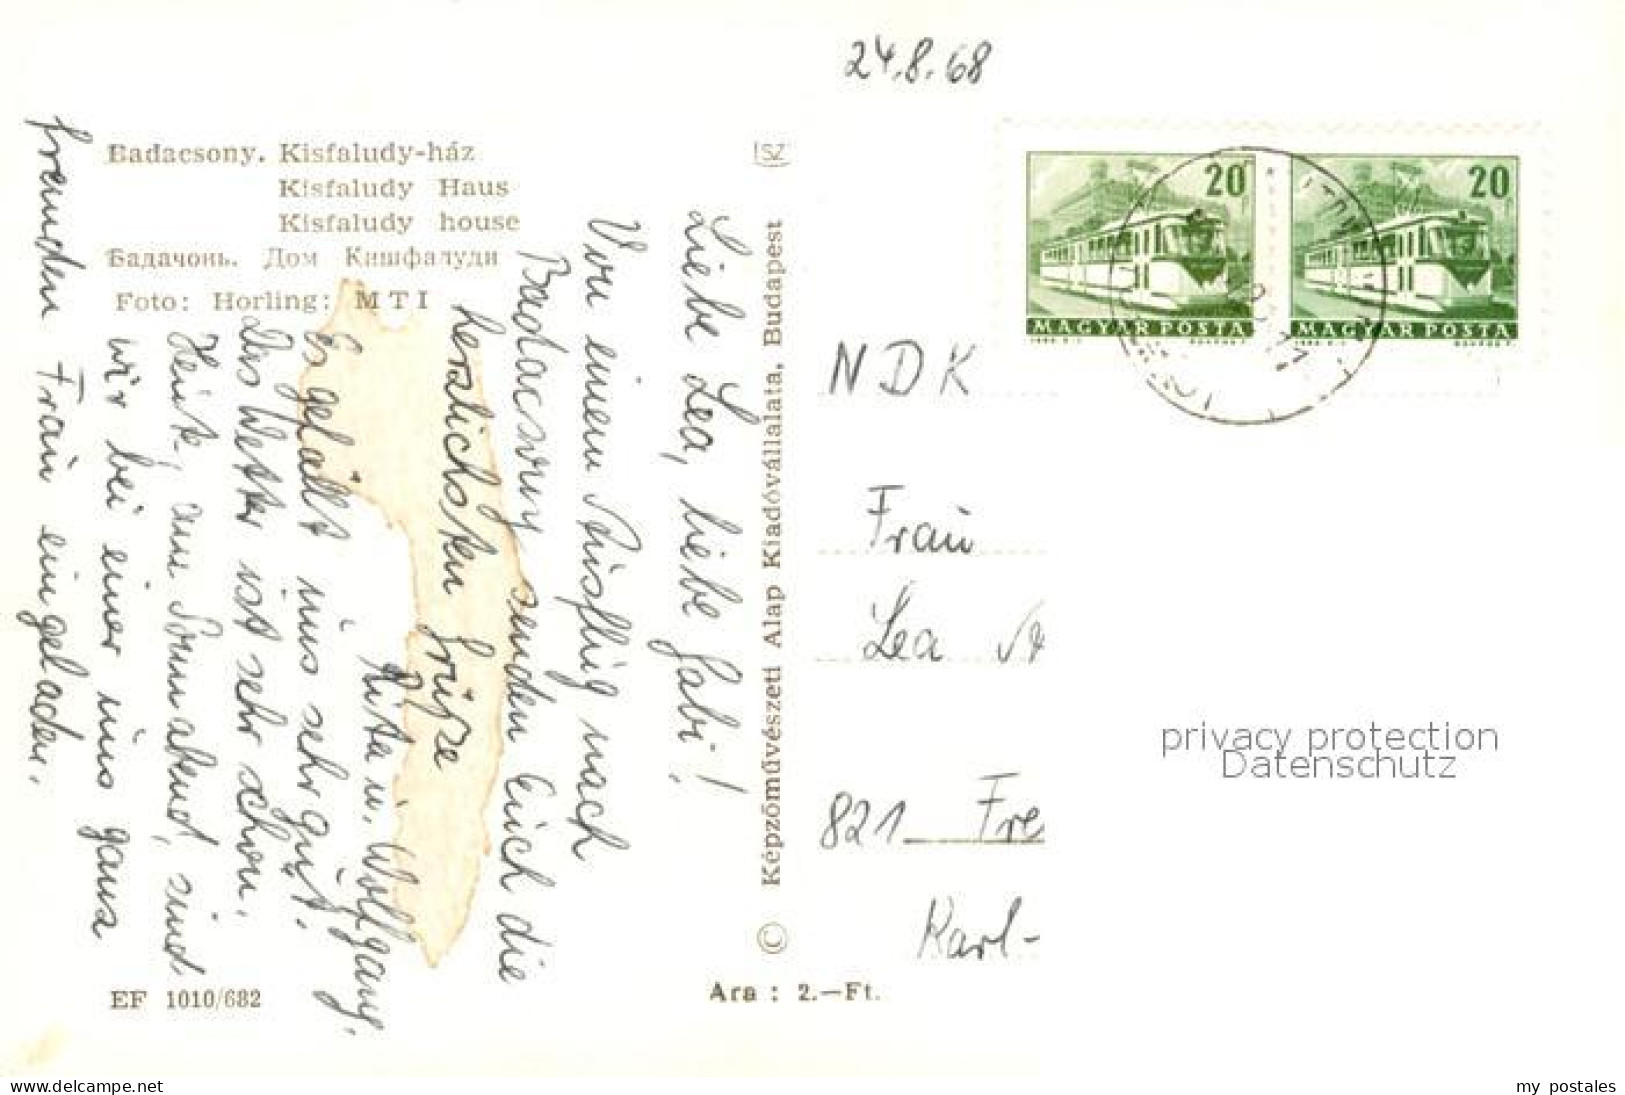 24.8.68
Badacsony. Kisfaludy-ház
Kisfaludy Haus
Kisfaludy house
Бадачонь. Дом Кишфалуди
Foto: Horling: MTI
SZ
20
20
MAGYAR POSTA
MAGYAR POSTA
Liebe Lea, liebe Gabi!
Von einem Ausflug nach
Badacsony senden Euch die
herzlichsten Grüße
Rita u. Wolfgang.
Es gefällt uns sehr gut.
Das Wetter ist sehr schön.
Heute, am Sonnabend, sind
wir bei einer uns ganz
fremden Frau eingeladen.
© Képzőművészeti Alap Kiadóvállalata, Budapest
NDK
Frau
Lea
821 Fre
Karl-
privacy protection
Datenschutz
EF 1010/682
Ára: 2.—Ft.
www.delcampe.net
my_postales